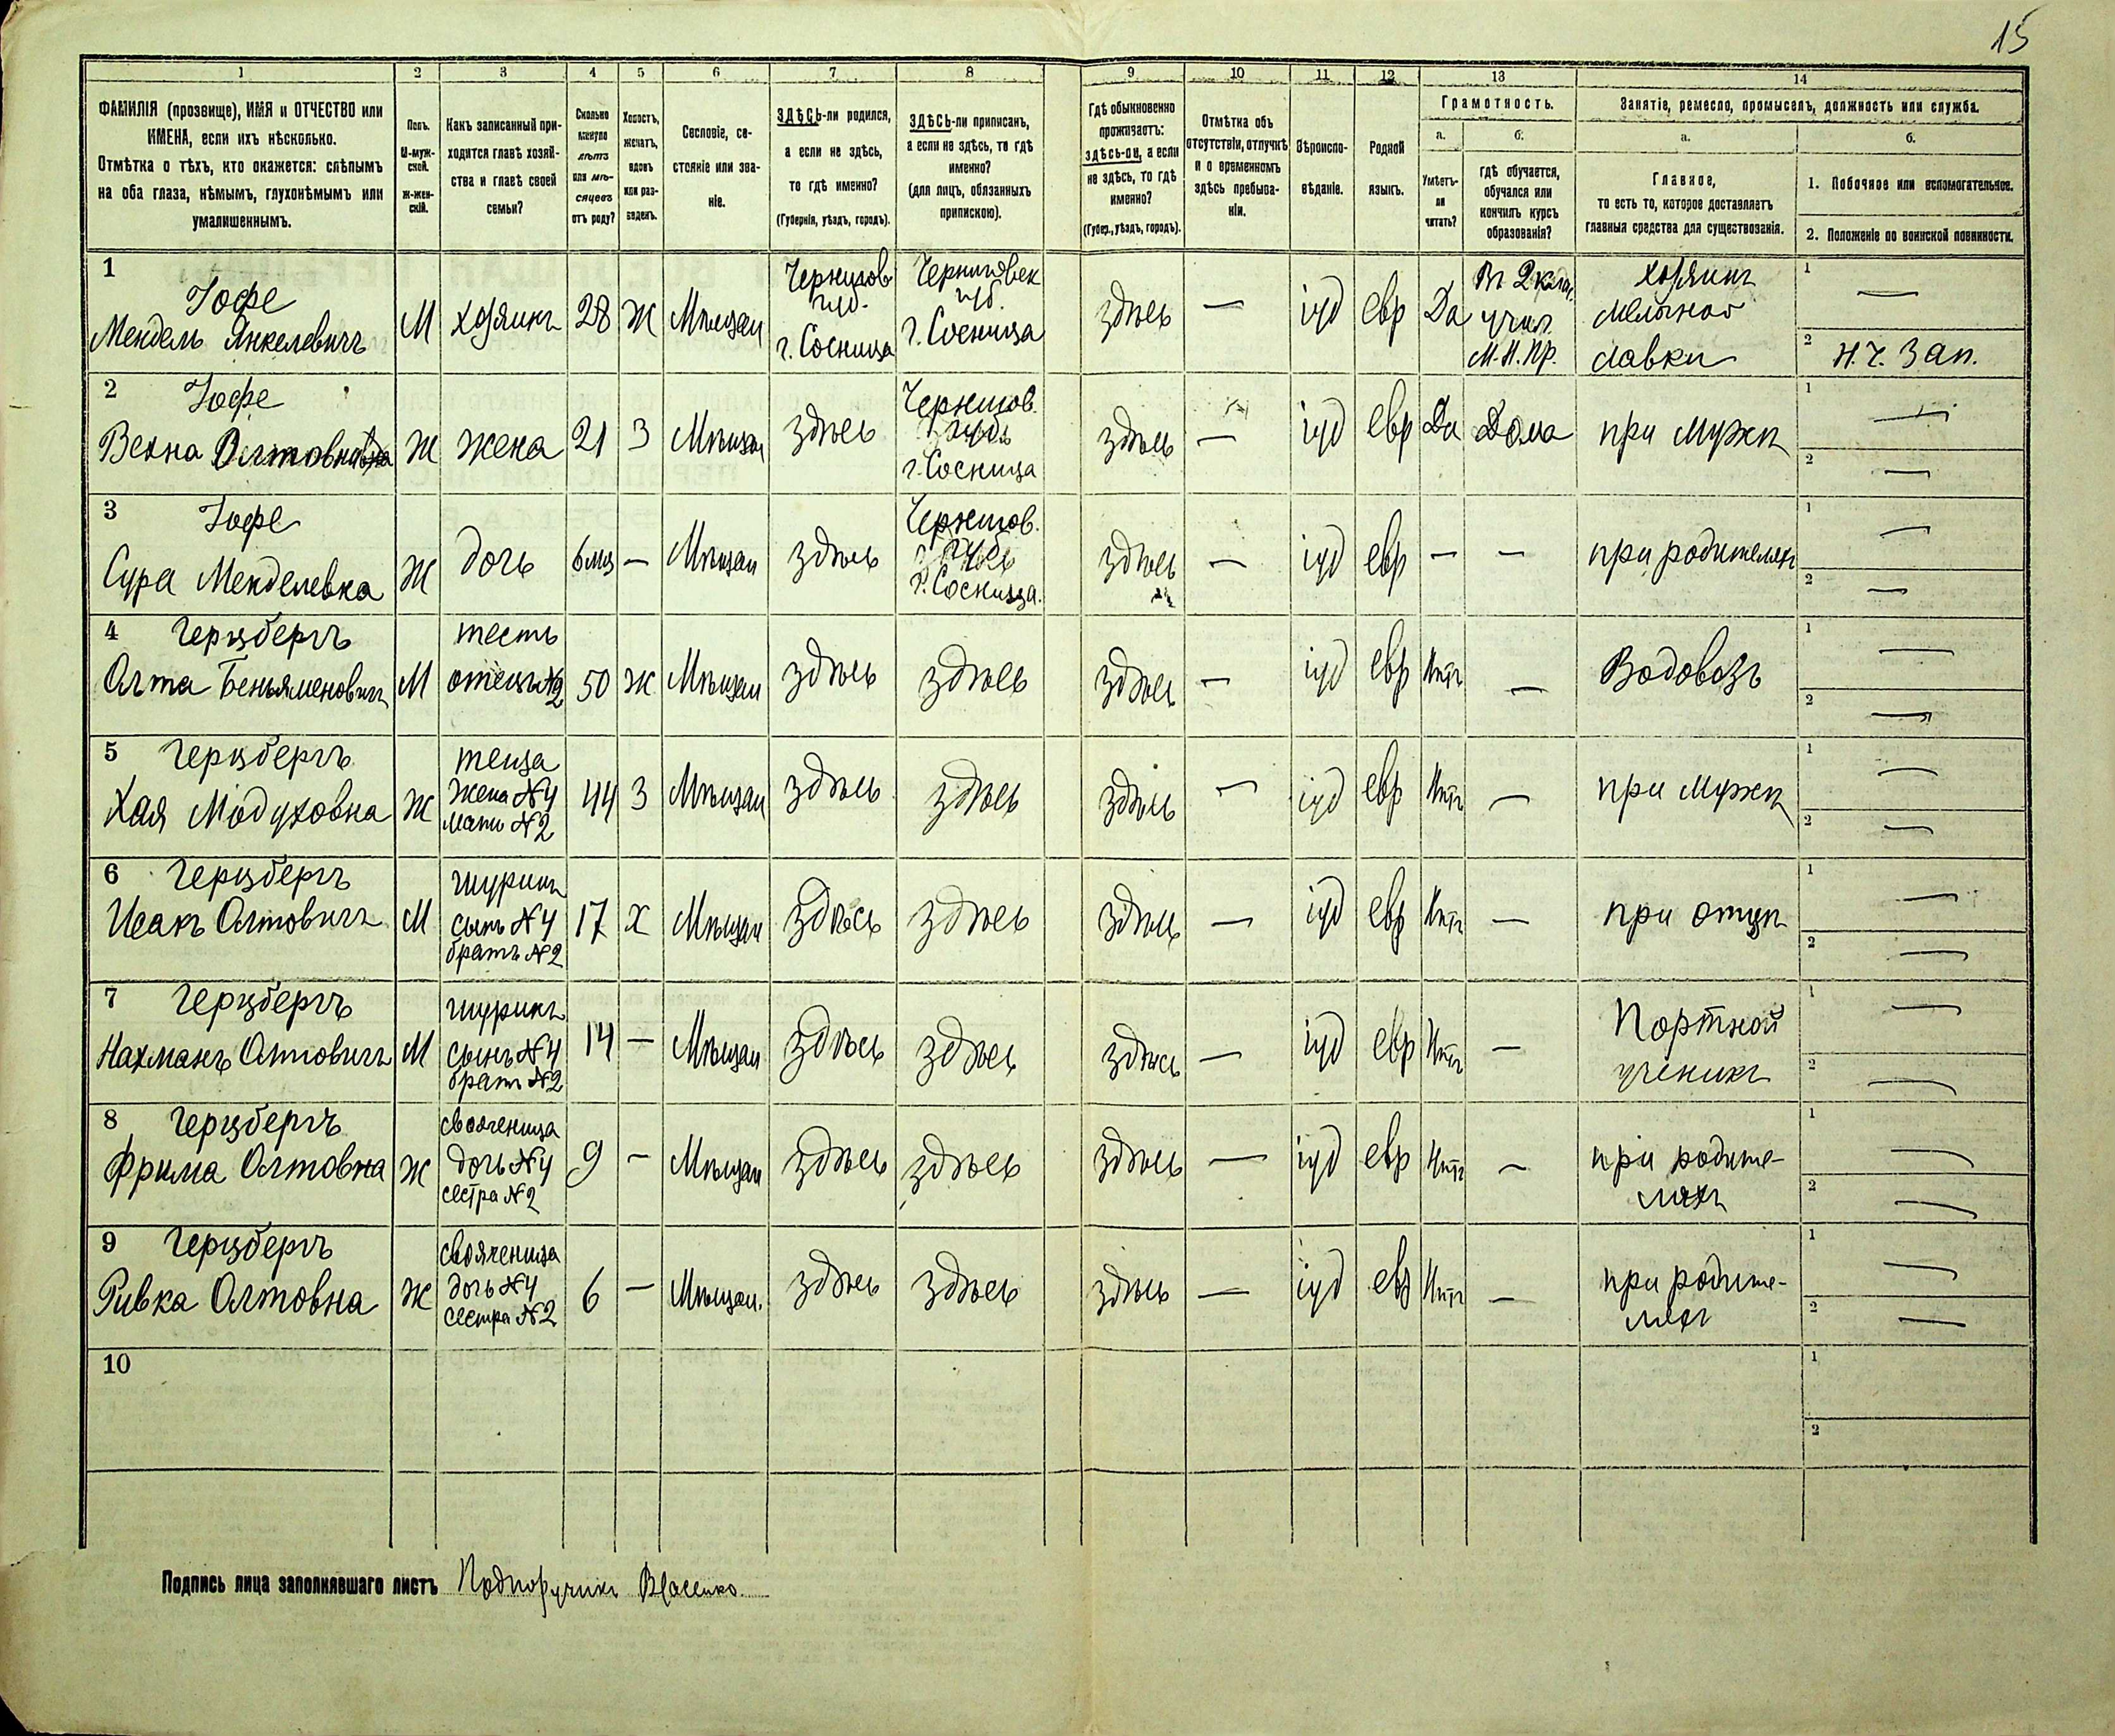 15
1 2 3 4 5 6 7 8 9 10 11 12 13 14
ФАМИЛІЯ (прозвище), ИМЯ и ОТЧЕСТВО или
ИМЕНА, если ихъ нѣсколько.
Отмѣтка о тѣхъ, кто окажется: слѣпымъ
на оба глаза, нѣмымъ, глухонѣмымъ или
умалишеннымъ.
Полъ.
М-муж-
ской.
ж-жен-
скій.
Какъ записанный при-
ходится главѣ хозяй-
ства и главѣ своей
семьи?
Сколько
минуло
лѣтъ
или мѣ-
сяцевъ
отъ роду?
Холостъ,
женатъ,
вдовъ
или раз-
веденъ.
Сословіе, со-
стояніе или зва-
ніе.
ЗДѢСЬ-ли родился,
а если не здѣсь,
то гдѣ именно?
(Губернія, уѣздъ, городъ).
ЗДѢСЬ-ли приписанъ,
а если не здѣсь, то гдѣ
именно?
(для лицъ, обязанныхъ
припискою).
Гдѣ обыкновенно
проживаетъ:
здѣсь-ли, а если
не здѣсь, то гдѣ
именно?
(Губер., уѣздъ, городъ).
Отмѣтка объ
отсутствіи, отлучкѣ
и о временномъ
здѣсь пребыва-
ніи.
Вѣроиспо-
вѣданіе.
Родной
языкъ.
Грамотность.
а.
Умѣетъ-
ли
читать?
б.
гдѣ обучается,
обучался или
кончилъ курсъ
образованія?
Занятіе, ремесло, промыселъ, должность или служба.
а.
Главное,
то есть то, которое доставляетъ
главныя средства для существованія.
б.
1. Побочное или вспомогательное.
2. Положеніе по воинской повинности.
1
Іофе
Мендель Янкелевичъ
М
хозяинъ
28
Ж
Мѣщан
Чернигов
губ.
г. Сосница
Черниговск
губ.
г. Сосница
здѣсь
—
іуд
евр
Да
Въ 2 клас.
учил.
М.Н.Пр.
хозяинъ
мелочной
лавки
1 —
2 Н.Ч. Зап.
2
Іофе
Велна Олтовна
Ж
жена
21
З
Мѣщан
здѣсь
Чернигов.
губ.
г. Сосница
здѣсь
—
іуд
евр
Да
Дома
при мужѣ
1 —
2 —
3
Іофе
Сура Менделевна
Ж
дочь
6 мѣс
—
Мѣщан
здѣсь
Чернигов.
губ.
г. Сосница.
здѣсь
—
іуд
евр
—
—
при родителяхъ
1 —
2 —
4
Герцбергъ
Олта Беньяменович
М
тесть
отецъ №2
50
ж
Мѣщан
здѣсь
здѣсь
здѣсь
—
іуд
евр
Нѣтъ
—
Водовозъ
1 —
2 —
5
Герцбергъ
Хая Мордуховна
Ж
теща
жена №4
мать №2
44
З
Мѣщан
здѣсь
здѣсь
здѣсь
—
іуд
евр
Нѣтъ
—
при мужѣ
1 —
2 —
6
Герцбергъ
Исакъ Олтовичъ
М
шуринъ
сынъ №4
братъ №2
17
х
Мѣщан
здѣсь
здѣсь
здѣсь
—
іуд
евр
Нѣтъ
—
при отцѣ
1 —
2 —
7
Герцбергъ
Нахманъ Олтовичъ
М
шуринъ
сынъ №4
братъ №2
14
—
Мѣщан
здѣсь
здѣсь
здѣсь
—
іуд
евр
Нѣтъ
—
Портной
ученикъ
1 —
2 —
8
Герцбергъ
Фрима Олтовна
Ж
свояченица
дочь №4
сестра №2
9
—
Мѣщан
здѣсь
здѣсь
здѣсь
—
іуд
евр
Нѣтъ
—
при родите-
ляхъ
1 —
2 —
9
Герцбергъ
Ривка Олтовна
Ж
свояченица
дочь №4
сестра №2
6
—
Мѣщан.
здѣсь
здѣсь
здѣсь
—
іуд
евр
Нѣтъ
—
при родите-
ляхъ
1 —
2 —
10
1
2
Подпись лица заполнявшаго листъ Подпоручикъ